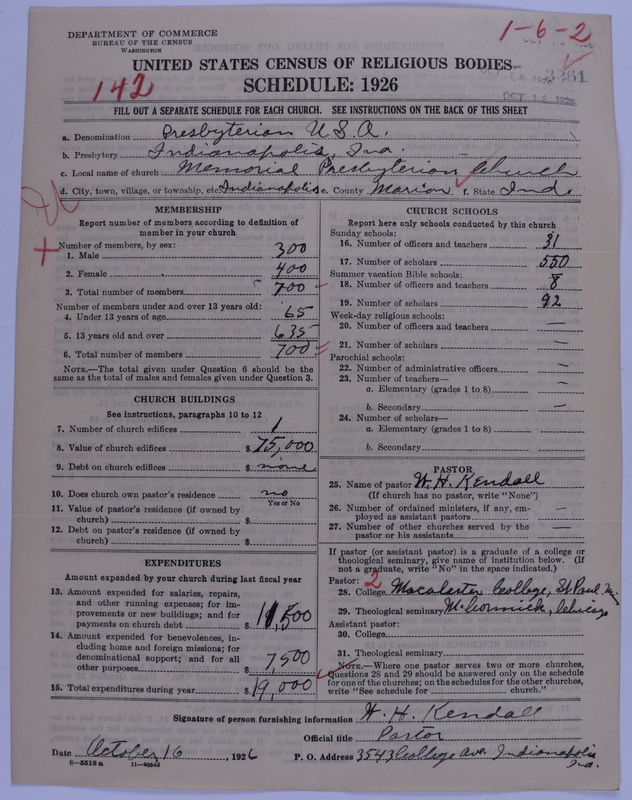 DEPARTMENT OF COMMERCE
BUREAU OF THE CENSUS
WASHINGTON
1-6-2
UNITED STATES CENSUS OF RELIGIOUS BODIES
142
SCHEDULE: 1926
3361
OCT 18 1926
FILL OUT A SEPARATE SCHEDULE FOR EACH CHURCH. SEE INSTRUCTIONS ON THE BACK OF THIS SHEET
a. Denomination Presbyterian U.S.A.
b. Presbytery Indianapolis, Ind.
c. Local name of church Memorial Presbyterian Church
d. City, town, village, or township, etc. Indianapolis e. County Marion f. State Ind.
MEMBERSHIP
Report number of members according to definition of
member in your church
Number of members, by sex:
1. Male 300
2. Female 400
3. Total number of members 700
Number of members under and over 13 years old:
4. Under 13 years of age 65
5. 13 years old and over 635
6. Total number of members 700
NOTE.—The total given under Question 6 should be
same as the total of males and females given under Question 3.
CHURCH BUILDINGS
See instructions, paragraphs 10 to 12
7. Number of church edifices 1
8. Value of church edifices $ 75,000
9. Debt on church edifices $ none
10. Does church own pastor's residence no
Yes or No
11. Value of pastor's residence (if owned by
church) $
12. Debt on pastor's residence (if owned by
church) $
EXPENDITURES
Amount expended by your church during last fiscal year
13. Amount expended for salaries, repairs,
and other running expenses; for im-
provements or new buildings; and for
payments on church debt $ 11,500
14. Amount expended for benevolences, in-
cluding home and foreign missions; for
denominational support; and for all
other purposes $ 7,500
15. Total expenditures during year $ 19,000
CHURCH SCHOOLS
Report here only schools conducted by this church
Sunday schools:
16. Number of officers and teachers 31
17. Number of scholars 550
Summer vacation Bible schools:
18. Number of officers and teachers 8
19. Number of scholars 92
Week-day religious schools:
20. Number of officers and teachers —
21. Number of scholars —
Parochial schools:
22. Number of administrative officers —
23. Number of teachers—
a. Elementary (grades 1 to 8) —
b. Secondary —
24. Number of scholars—
a. Elementary (grades 1 to 8) —
b. Secondary
PASTOR
25. Name of pastor W. H. Kendall
(If church has no pastor, write "None")
26. Number of ordained ministers, if any, em-
ployed as assistant pastors —
27. Number of other churches served by the
pastor or his assistants —
If pastor (or assistant pastor) is a graduate of a college or
theological seminary, give name of institution below. (If
not a graduate, write "No" in the space indicated.)
Pastor: 2
28. College Macalester College, St Paul M
29. Theological seminary McCormick, Chicago
Assistant pastor:
30. College
31. Theological seminary
NOTE.—Where one pastor serves two or more churches,
Questions 28 and 29 should be answered only on the schedule
for one of the churches; on the schedules for the other churches,
write "See schedule for church."
Signature of person furnishing information W. H. Kendall
Official title Pastor
Date October 16, 1926 P. O. Address 3543 College Ave. Indianapolis
Ind.
8-5518 a